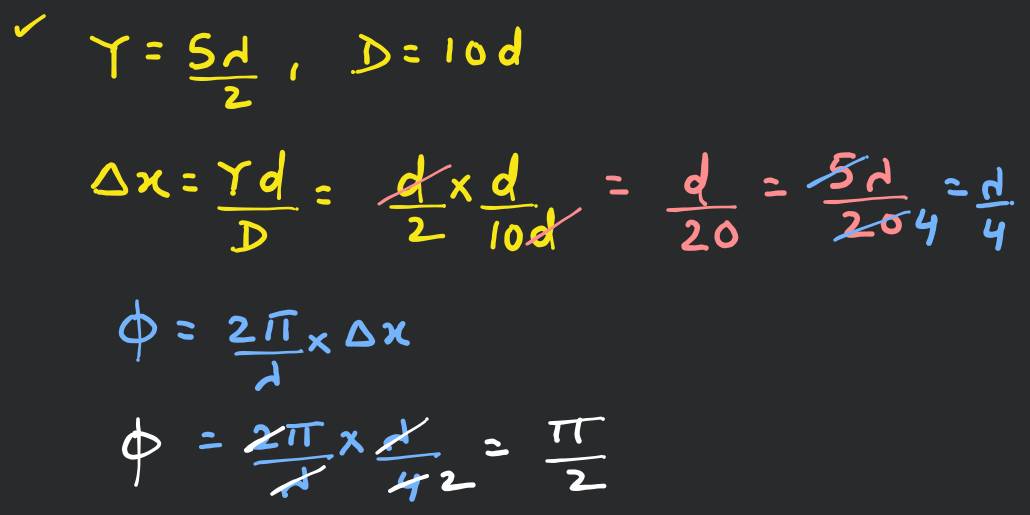 ✓ Y = 5λ/2 , D = 10d
Δx = Yd/D = d/2 × d/10d = d/20 = 5λ/20 4 = λ/4
ϕ = 2π/λ × Δx
ϕ = 2π/λ × λ/4 2 = π/2